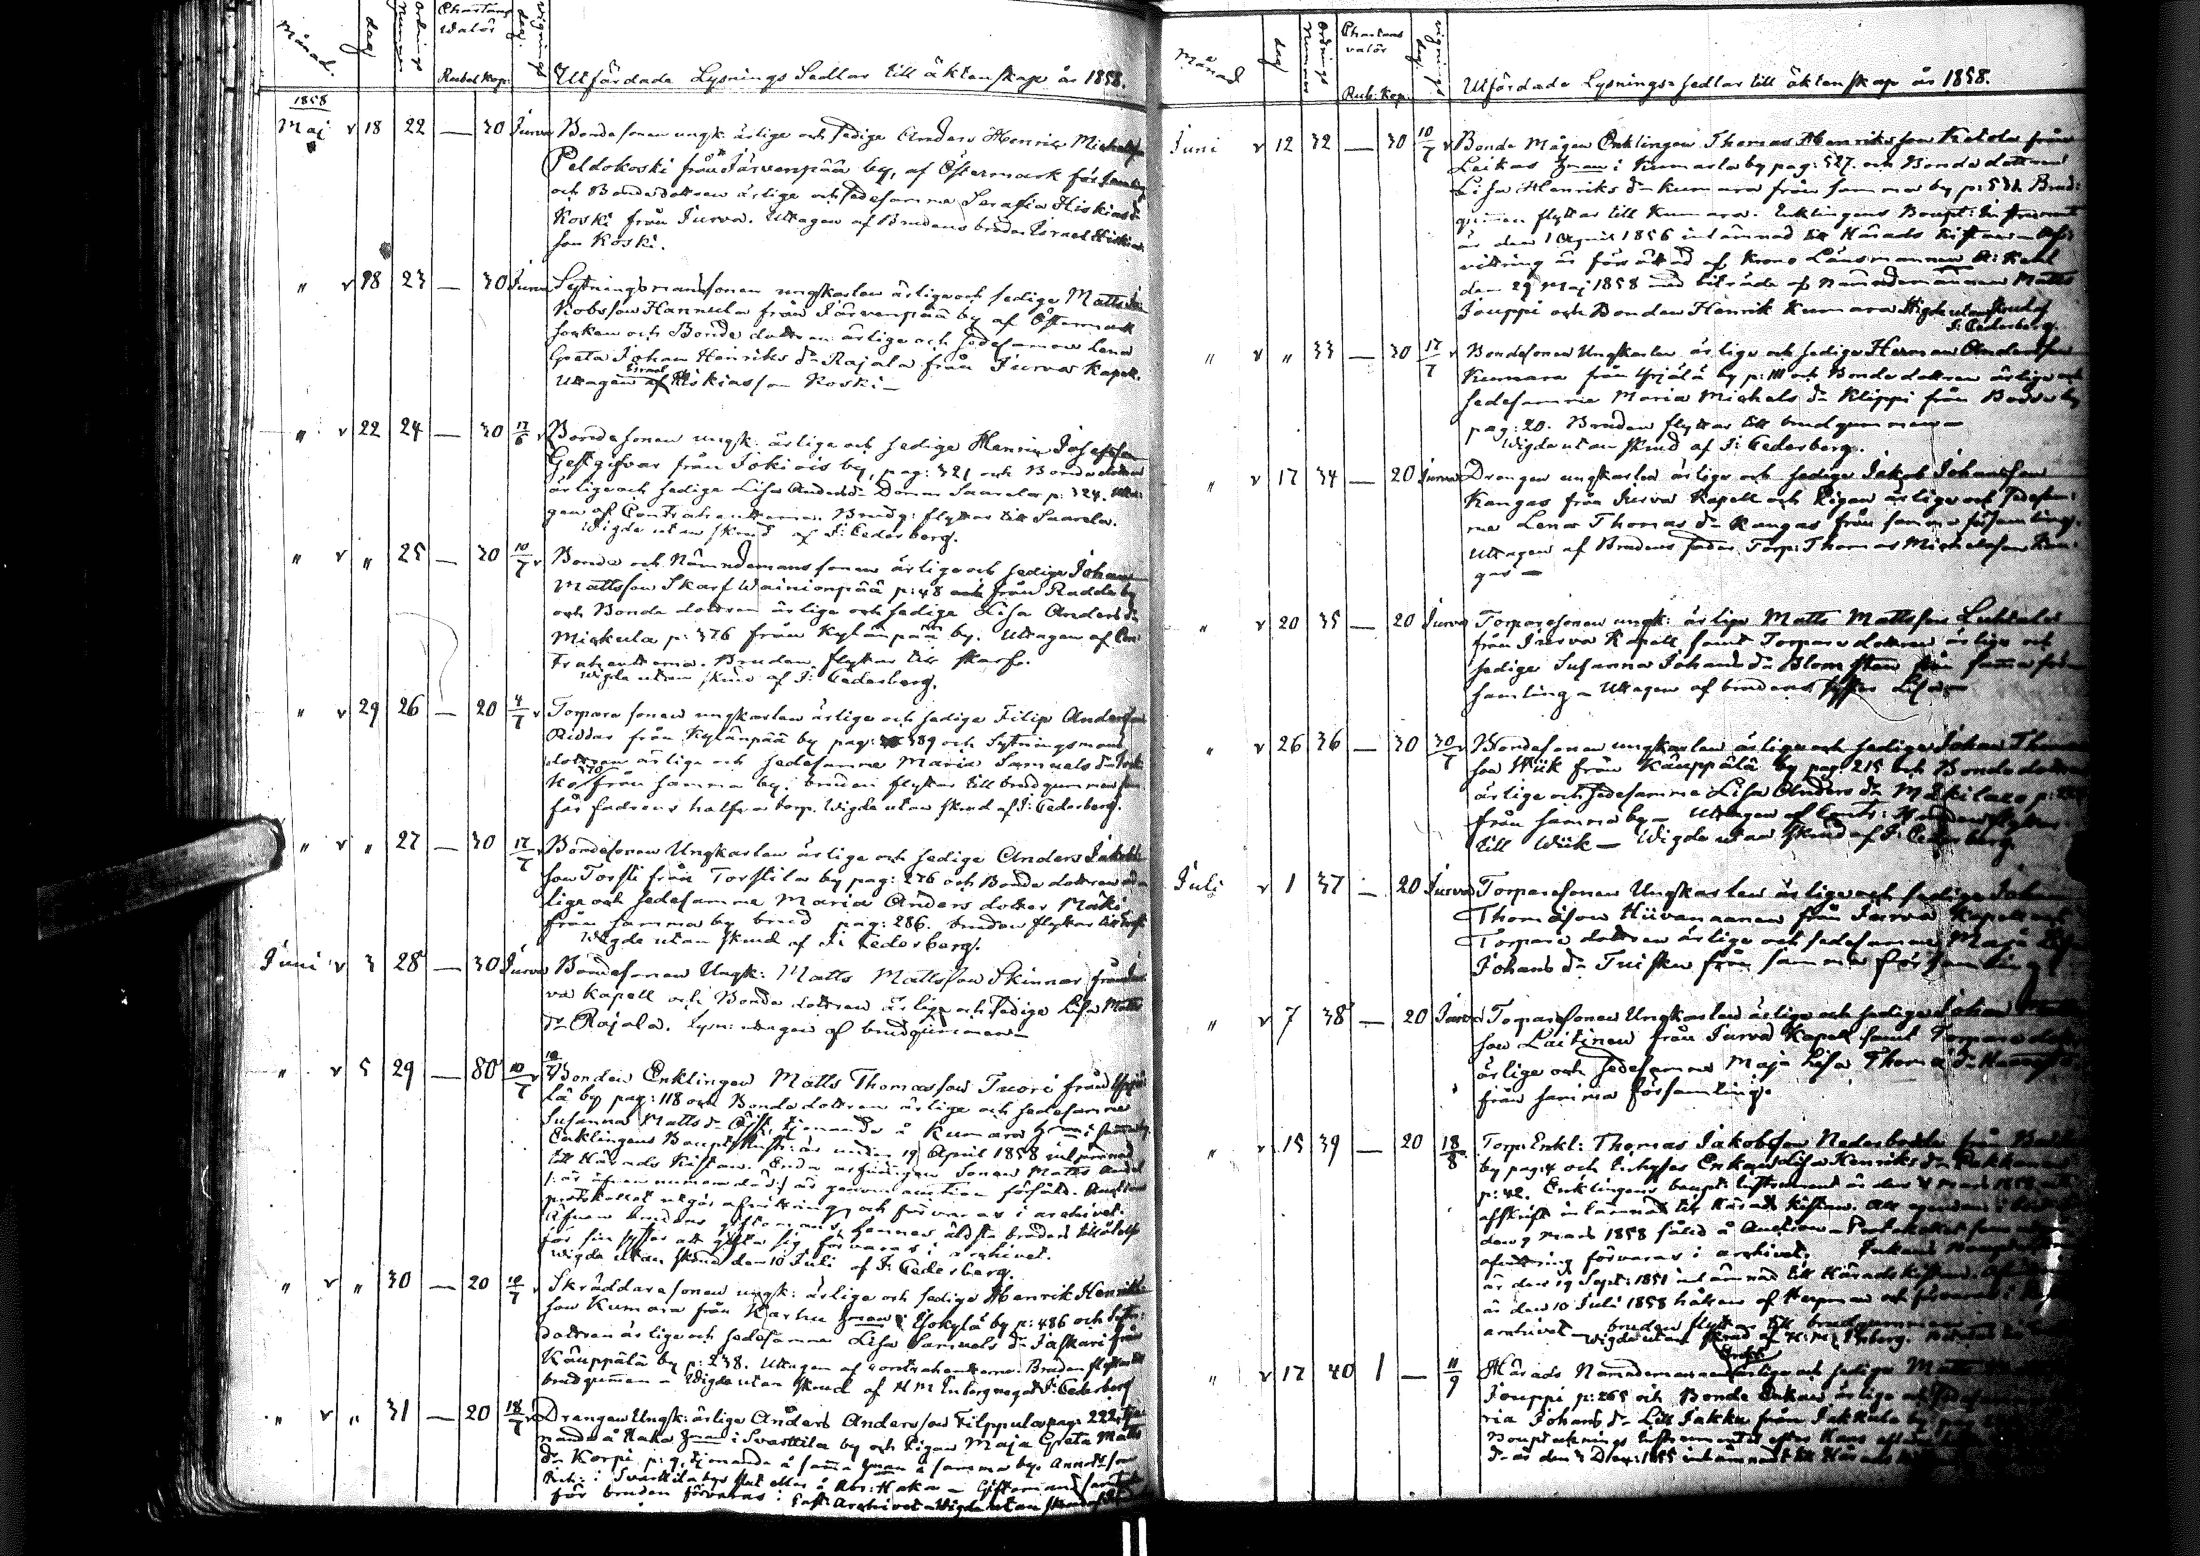 Månad. dag Ordnings Nummer Chartæ Walör Rubel Kop: Vignings dag. Utfärdade Lysnings Sedlar till äktenskap år 1858.
1858
Maj v 18 22 — 30 Jurva Bondesonen ungk: ärlige och sedige Anders Henric Michelsson
Peldokoski från Järvenpää by, af Östermark församling
och Bondedottren ärlige och sedesamma Serafia Hiskias dr
Koski från Jurva. Uttagen af Brudens broder Israel Hiskias
son Koski.
" v 18 23 — 30 Jurva Sytningsmansonen ungkarlen ärlige och sedige Matts Ja
kobsson Hannula från Järvenpää by af Östermark
socken och Bonde dottren ärlige och sedesamma Lena
Greta Johan Henriks dr Rajala från Jurva Kapell.
Uttagen af Israel Hiskiasson Koski —
" v 22 24 — 30 17/6 v Bondesonen ungk: ärlige och sedige Henric Josefsson
Gestgifvar från Jokiois by, pag: 321 och Bondedottren
ärlige och sedige Lisa Anders dr Donar Saarela p: 324. Utta:
gen af Contrahenterna. Brudg: flyttar till Saarela.
Wigde utan skrud af J: Cederberg.
" v " 25 — 30 10/7 v Bonde och Nämndemans sonen ärlige och sedige Johan
Mattsson Skarf Wainionpää p: 48 från Rudda by
och Bonde dottren ärlige och sedige Lisa Anders dr
Mickula p: 376 från Kylänpää by. Uttagen af Con
trahenterna. Bruden flyttar till Skarf.
Wigde utan skrud af J: Cederberg.
" v 29 26 — 20 4/7 v Torpare sonen ungkarlen ärlige och sedige Filip Andersson
Riddar från Kylänpää by pag: 389 och Sytningsmans
dottren ärlige och sedesamma Maria Samuels dr
370 från samma by. bruden flyttar till brudgummen som
får fadrens halfva torp. Wigde utan skrud af J: Cederberg.
" v " 27 — 30 17/7 v Bondesonen Ungkarlen ärlige och sedige Anders Jakobs
son Torsti från Torstila by pag: 276 och Bonde dottren är
lige och sedesamma Maria Anders dotter Mäki
från samma by brud pag: 286. bruden flyttar till
Wigde utan skrud af J: Cederberg.
Juni v 3 28 — 30 Jurva Bondesonen Ungk: Matts Mattsson Skinnar från Jur
va Kapell och Bonde dottren ärlige och sedige Lisa Matts
dr Rajala. Lysn: uttagen af brudgummen —
" v 5 29 — 80 10/7 v Bonden Enklingen Matts Thomasson Tuori från Yrjä
lä by pag: 118 och Bondedottren ärlige och sedesamma
Susanna Matts dr tjenande å Kumara hman i samma by.
Enklingens Bouppt. är under 19 April 1858 inlemnad
till Härads Kistan. Enda arfvingen Sonen Matts
är genom auction försåld. Auctions
protokollet utgör afvittring och förvaras i archivet.
Äfven brudens giftomans, hennes äldsta broders tillåtelse
för sin syster att gifta sig förvaras i archivet.
Wigde utan skrud den 10 Juli af J: Cederberg.
" v " 30 — 20 10/7 v Skräddaresonen ungk: ärlige och sedige Henrik Henriks
son Kumara från Karhu hman i Yjokylä by p: 486 och Sytn:
dottren ärlige och sedesamma Lisa Samuels dr Jaskari från
Käuppälä by p: 238. Uttagen af contrahenterna. Bruden flyttar till
brudgummen — Wigde utan skrud af H M Inberg J: Cederberg
" v " 31 — 20 18/7 v Drengen Ungk: ärlige Anders Andersson Filppula pag: 222, tje
nande å Haka hman i Svarttila by och Pigan Maja Greta Matts
dr Korpi p: 9, tjenande å samma hman å samma by.
i Svarttila by
för bruden förvaras i Archivet — Wigde utan skrud

Månad dag Ordnings Nummer Chartæ valör Rub: Kop. vignings dag. Utfärdade Lysnings-sedlar till äktenskap år 1858.
Juni v 12 32 — 30 10/7 v Bonde Mågen Enklingen Thomas Henriksson Ketola från
Leikas hman i Kumarla by pag: 527. och Bondedottren
Lisa Henriks dr Kumara från samma by p: 531. Brud:
gummen flyttar till Kumara. Enklingens Boupt: Instrument
är den 1 April 1856 inlämnad till Härads Kistan —
vittring är förrättad af Krono Länsmannen
den 29 Maj 1858 med biträde af Nämndemannen Matts
Jouppi och Bonden Henrik Kumara Wigde utan skrud af
J: Cederberg.
" v " 33 — 30 17/7 v Bondesonen Ungkarlen ärlige och sedige Herman Andersson
Kumara från Yrjälä by p: 111 och Bonde dottren ärlige och
sedesamma Maria Michels dr Klippi från by
pag: 20. Bruden flyttar till brudgummen —
Wigde utan skrud af J: Cederberg.
" v 17 34 — 20 Jurva Drengen ungkarlen ärlige och sedige Jakob Johansson
Kangas från Jurva Kapell och Pigan ärlige och sedesam:
ma Lena Thomas dr Kangas från samma församling.
Uttagen af Brudens fader Torp: Thomas Michelsson Kan:
gas —
" v 20 35 — 20 Jurva Torparesonen ungk: ärlige Matts Mattsson Luhtala
från Jurva Kapell samt Torpare dottren ärlige och
sedige Susanna Johans dr Blomsten från samma för
samling — Uttagen af brudens syster Lisa —
" v 26 36 — 30 30/7 v Bondesonen ungkarlen ärlige och sedige Johan Thomas
son Wiik från Käuppälä by pag. 215 och Bonde dottren
ärlige och sedesamma Lisa Anders dr Mäkilaro
från samma by — Uttagen af Contr:
till Wiik — Wigde utan skrud af J: Cederberg.
Juli v 1 37 — 20 Jurva Torparesonen Ungkarlen ärlige och sedige Johan
Thomasson Hiivanainen från Jurva Kapell och
Torpare dottren ärlige och sedesamma Maja Lisa
Johans dr Tuisku från samma församling
" v 7 38 — 20 Jurva Torparesonen Ungkarlen ärlige och sedige Johan
son Laitinen från Jurva Kapell samt Torpare dottren
ärlige och sedesamma Maja Lisa Thomas dr
från samma församling.
" v 15 39 — 20 18/8 Torp: Enkl: Thomas Jakobsson Nederbodda från
by pag: 4 och Inhyses Enkan Lisa Henriks dr Pakkanen
p: 42. Enklingens boupt: Instrument är den Mars 1858
afskrift inlämnad till Härads Kistan. All egendom
den 9 Mars 1858 såld å Auction — Protokollet
afvittring förvaras i archivet. Enkans
är den 19 Sept: 1851 inlämnad till Häradskistan.
är den 10 Juli 1858 hållen af och förvaras i
archivet — bruden flytt. till brudgummen —
Wigde utan skrud af H: M: Inberg.
" v 17 40 1 — 11/9 Härads Nämndemannen Enkl: ärlige och sedige Matts
Jouppi p: 265 och Bonde Enkan ärlige och sedesamma
ria Johans dr Lill Jakku från Jakkula by
Bouptecknings Instrumentet efter Hans
är den 3 Dec: 1855 inlämnadt till Härads